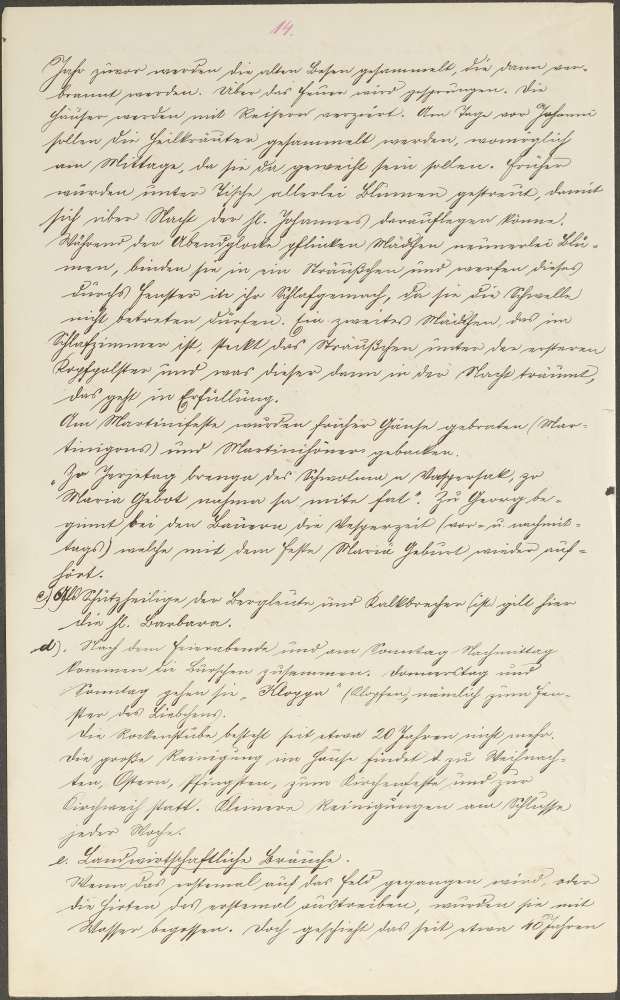 14.
Jahr zuvor werden die alten Besen gesammelt, die dann ver-
brannt werden. Über das Feuer wird gesprungen. Die
Häuser werden mit Reisern verziert. Am Tage vor Johanni
sollen die Heilkräuter gesammelt werden, womöglich
am Mittage, da sie da geweiht sein sollen. Früher
wurden unter Tische allerlei Blumen gestreut, damit
sich über Nacht der hl. Johannes darauflegen könne.
Während der Abendglocke pflücken Mädchen neunerlei Blu-
men, binden sie in ein Sträußchen und werfen dieses
durchs Fenster in ihr Schlafgemach, da sie die Schwelle
nicht betreten dürfen. Ein zweites Mädchen, das im
Schlafzimmer ist, steckt das Sträußchen unter der ersteren
Kopfpolster und was dieser dann in der Nacht träumt,
das geht in Erfüllung.
Am Martinifeste wurden früher Gänse gebraten (Mar-
tinigons) und Martinihöner gebacken.
"Zo Jerjetag brenga des Schwolma a Vaspersak, zo
Maria Gebot nahma sa mite fat". Zu Georg be-
ginnt bei den Bauern die Vesperzeit (vor- u. nachmit-
tags) welche mit dem Feste Mariä Geburt wieder auf-
hört.
c) Als Schutzheilige der Bergleute und Kalkbrecher (ist gilt hier
die hl. Barbara.
d). Nach dem Feierabende und am Sonntag Nachmittag
kommen die Burschen zusammen. Donnerstag und
Sonntag gehen sie "Kloppa" (Klopfen), nämlich zum Fen-
ster des Liebchens.
Die Rockenstube besteht seit etwa 20 Jahren nicht mehr.
Die große Reinigung im Hause findet zu Weihnach-
ten, Ostern, Pfingsten, zum Kirchenfeste und zur
Kirchweih statt. Kleinere Reinigungen am Schlusse
jeder Woche.
e. Landwirtschaftliche Bräuche.
Wenn das erstemal auf das Feld gegangen wird, oder
die Hirten das erstemal austreiben, wurden sie mit
Wasser begossen. Doch geschieht das seit etwa 40 Jahren